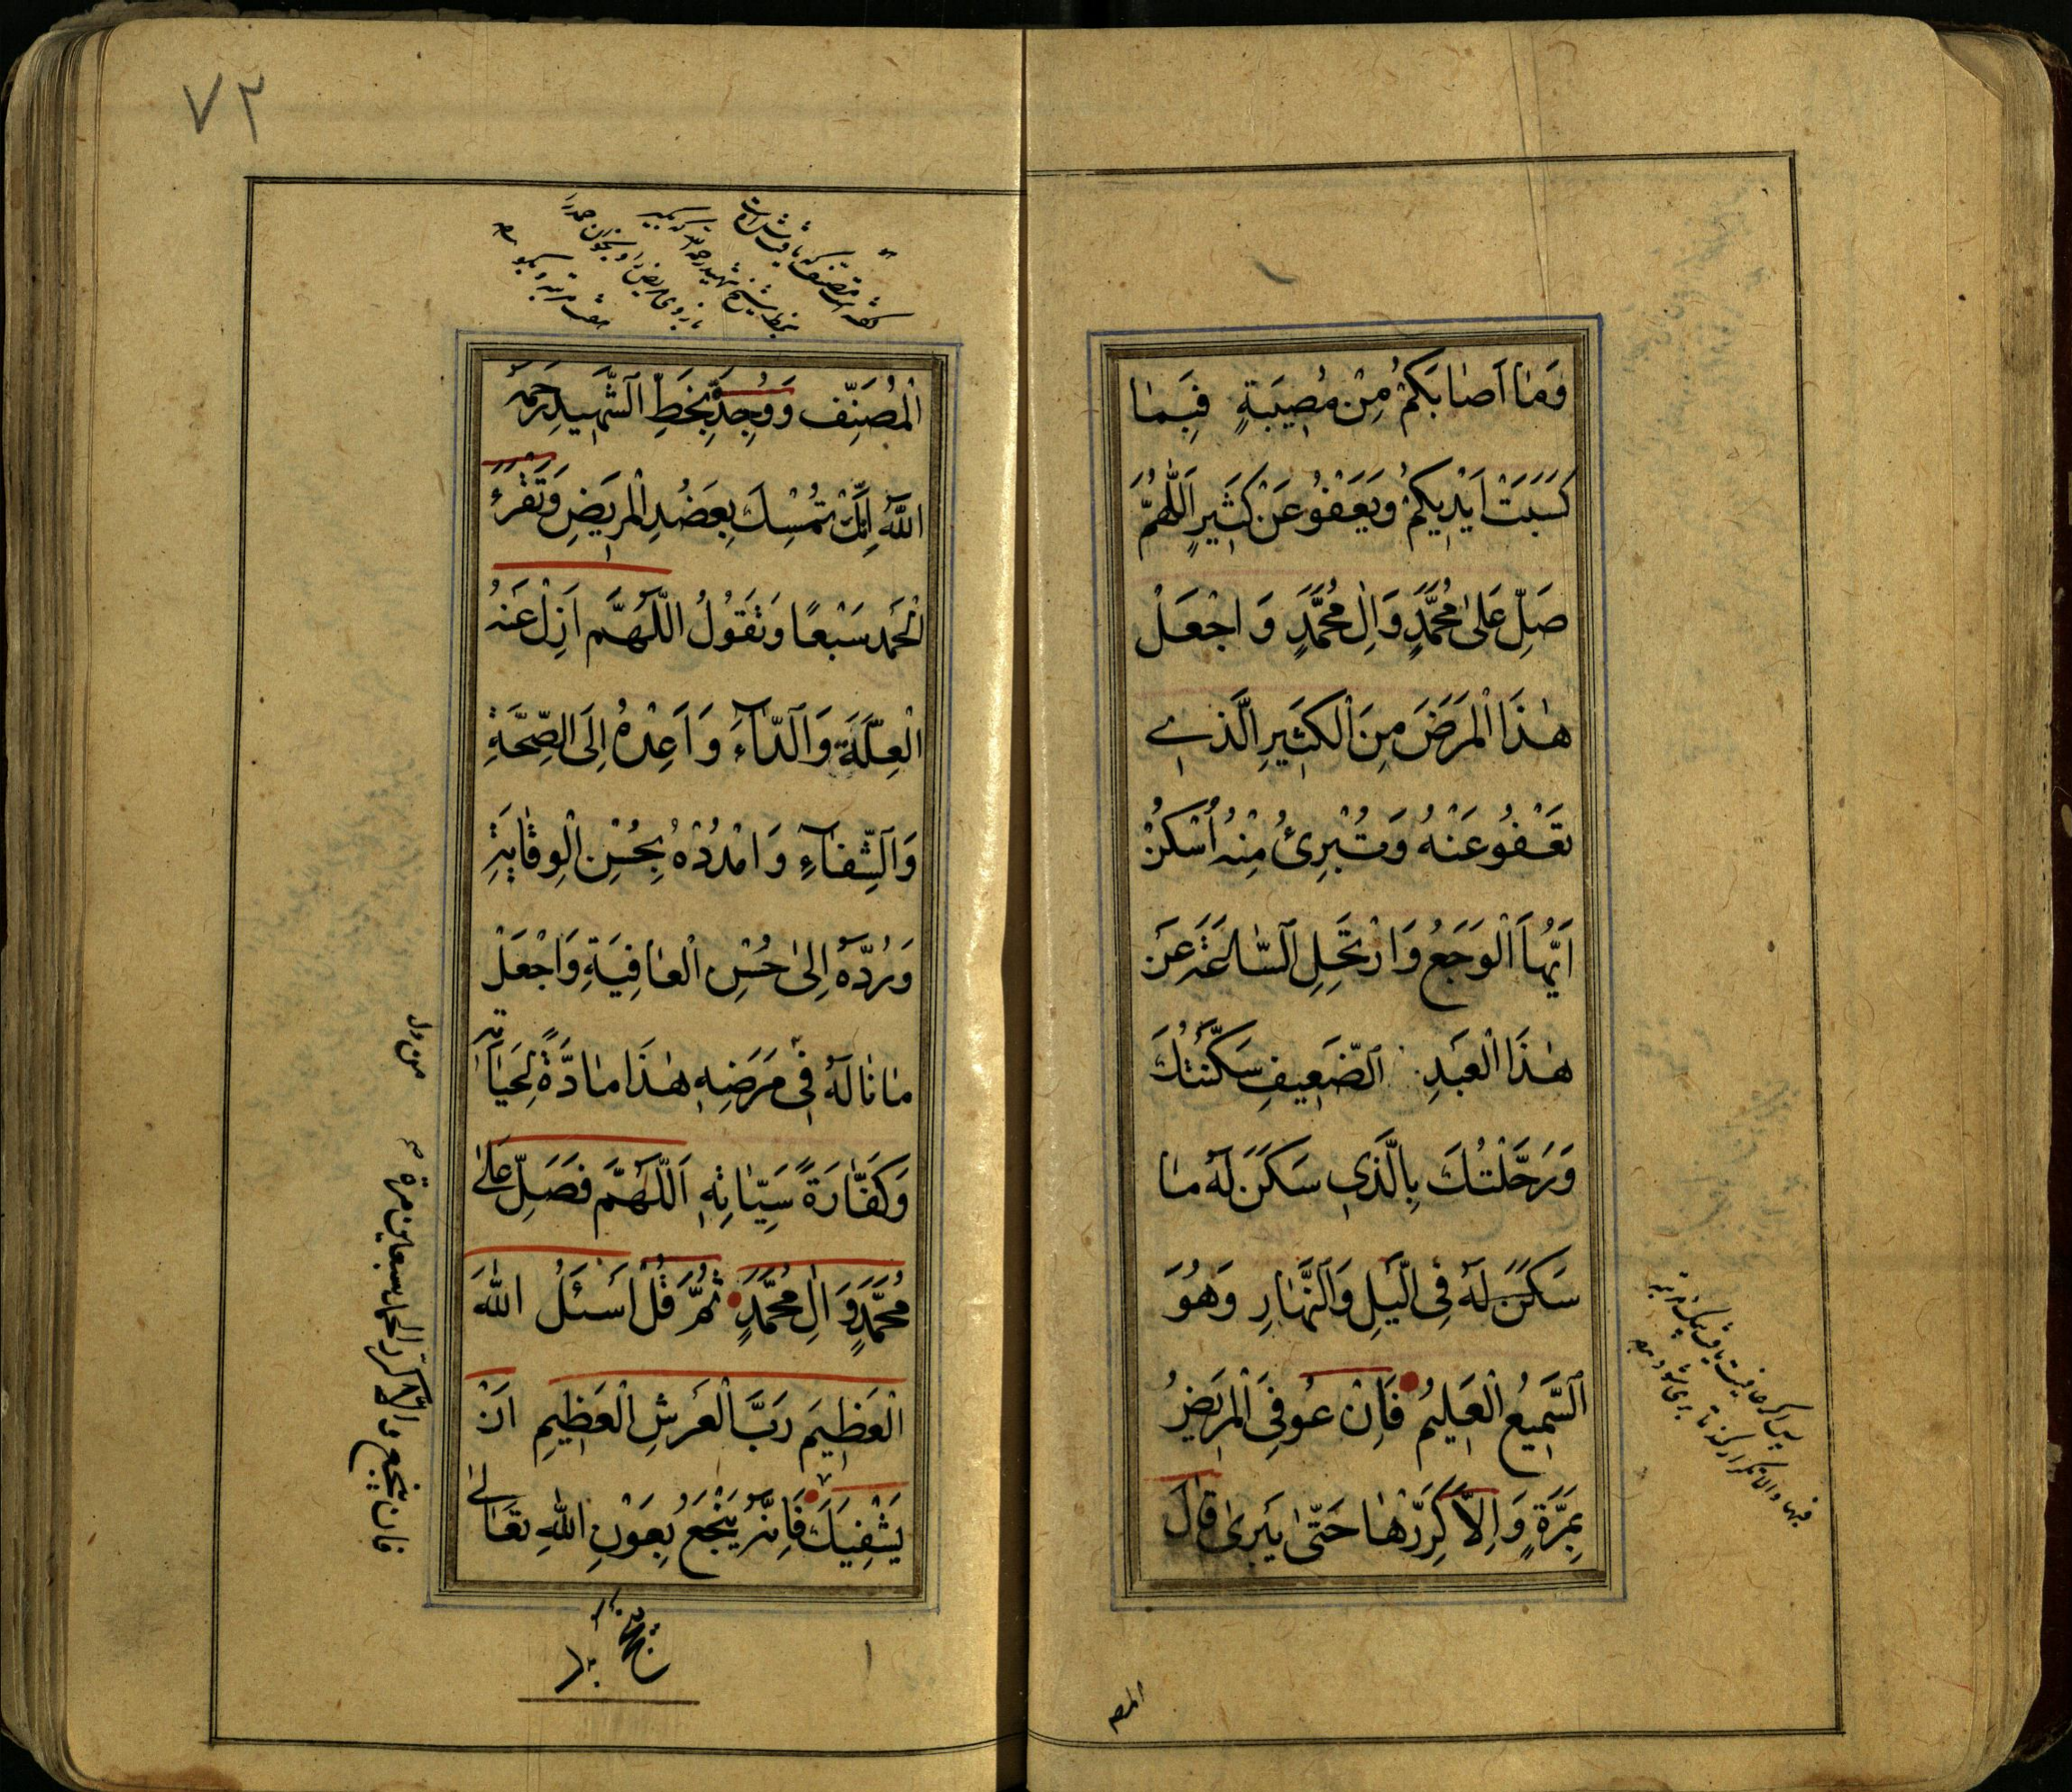 وَمٰا اَصٰابَكُمْ مِنْ مُصِيبَةٍ فَبِمٰا
كَسَبَتْ اَيْدِيكُمْ وَيَعْفُو عَنْ كَثِيرٍ اَللّٰهُمَّ
صَلِّ عَلىٰ مُحَمَّدٍ وَاٰلِ مُحَمَّدٍ وَ اجْعَلْ
هٰذَا الْمَرَضَ مِنَ الْكَثِيرِ الَّذِي
تَعْفُو عَنْهُ وَتُبْرِئُ مِنْهُ اُسْكُنْ
اَيُّهَا الْوَجَعُ وَارْتَحِلِ السّٰاعَةَ عَنْ
هٰذَا الْعَبْدِ الضَّعِيفِ سَكَّنْتُكَ
وَرَحَّلْتُكَ بِالَّذِي سَكَنَ لَهُ مٰا
سَكَنَ لَهُ فِى الَّيْلِ وَالنَّهٰارِ وَهُوَ
السَّمِيعُ الْعَلِيمُ فَاِنْ عُوفِىَ الْمَرِيضُ
بِمَرَّةٍ وَاِلاّٰ كَرِّرْهٰا حَتّىٰ يَبْرىٰ قٰالَ
المص
٧٢
الْمُصَنِّف وَوُجِدَ بِخَطِّ الشَّهِيدِ رَحِمَهُ
اللّٰهُ اِنَّكَ تُمْسِكُ بِعَضُدِ الْمَرِيضِ وَتَقْرَءُ
الْحَمْدَ سَبْعًا وَتَقُولُ اللّٰهُمَّ اَزِلْ عَنْهُ
الْعِلَلَ وَالدّٰاۤءَ وَ اَعِدْهُ اِلَى الصِّحَّةِ
وَالشِّفٰاۤءِ وَ امْدُدْهُ بِحُسْنِ الْوِقٰايَةِ
وَرُدَّهُ اِلىٰ حُسْنِ الْعٰافِيَةِ وَاجْعَلْ
مٰا نٰالَهُ فِى مَرَضِهِ هٰذَا مٰادَّةً لِحَيٰاتِهِ
وَكَفّٰارَةً سَيِّاٰتِهِ اَللّٰهُمَّ فَصَلِّ عَلىٰ
مُحَمَّدٍ وَاٰلِ مُحَمَّدٍ ثُمَّ قُلْ اَسْئَلُ اللّٰهَ
الْعَظِيمَ رَبَّ الْعَرْشِ الْعَظِيمِ اَنْ
يَشْفِيَكَ فَاِنَّهُ يَنْجَعُ بِعَوْنِ اللّٰهِ تَعٰالىٰ
فان ينجع والا كرر الحمد سبعين مرة